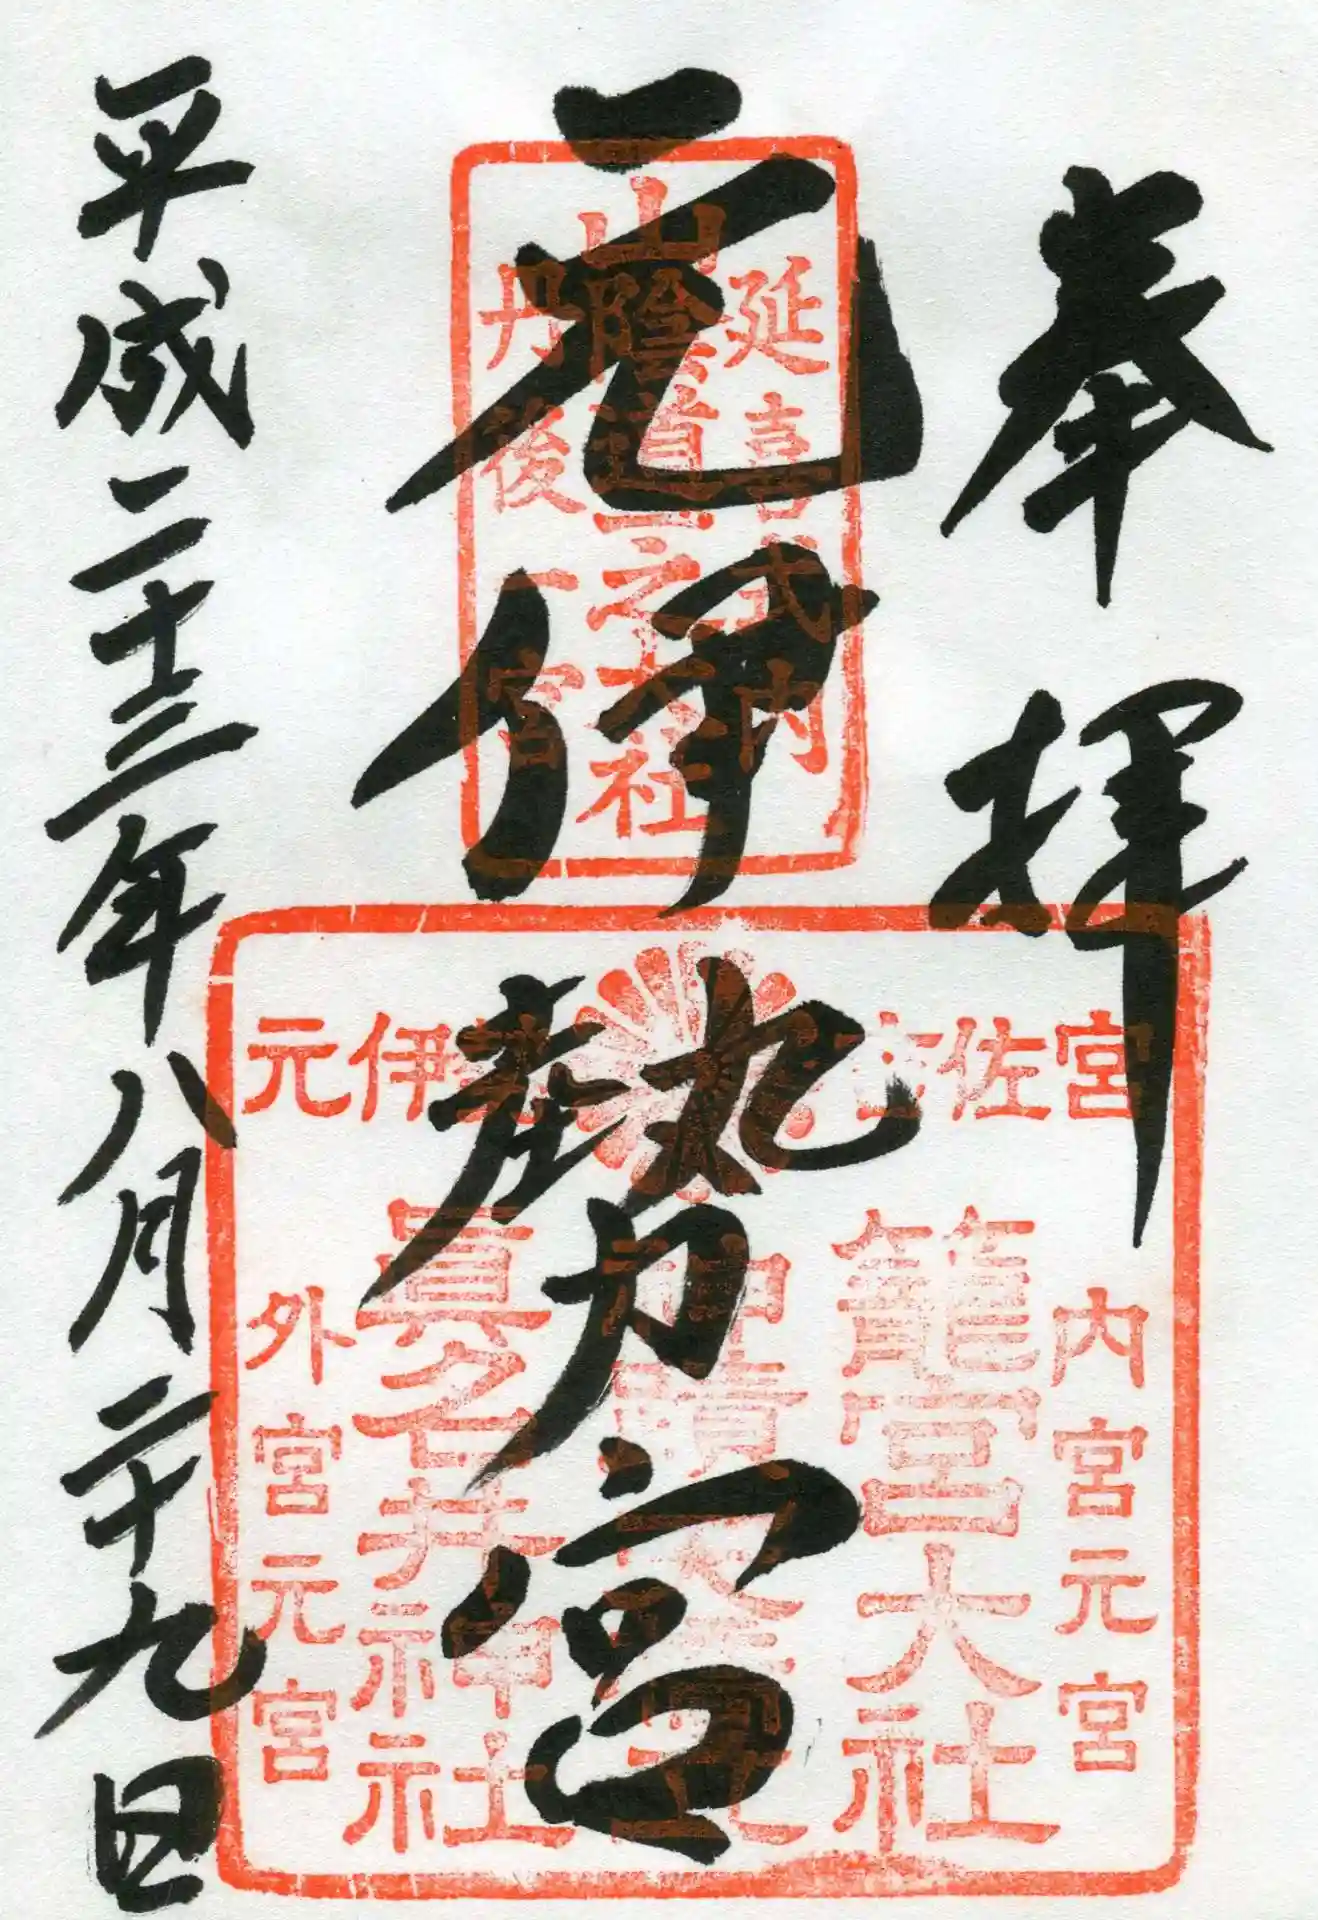 奉拝
元伊勢宮
平成二十三年八月二十九日
延喜式内
山陰道一之大社
丹後一宮
元伊勢 吉佐宮
内宮元宮
籠宮大社
眞名井神社
外宮元宮